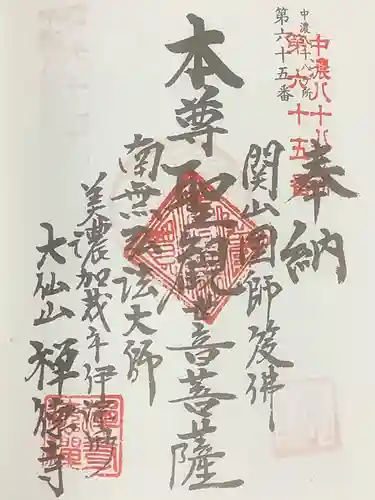 中濃八十八ヶ所
第六十五番
中濃八十八
第六十五番
奉納
関山国師爰佛
本尊聖観世音菩薩
南無弘法大師
美濃加茂市伊深町
大仙山禅徳寺